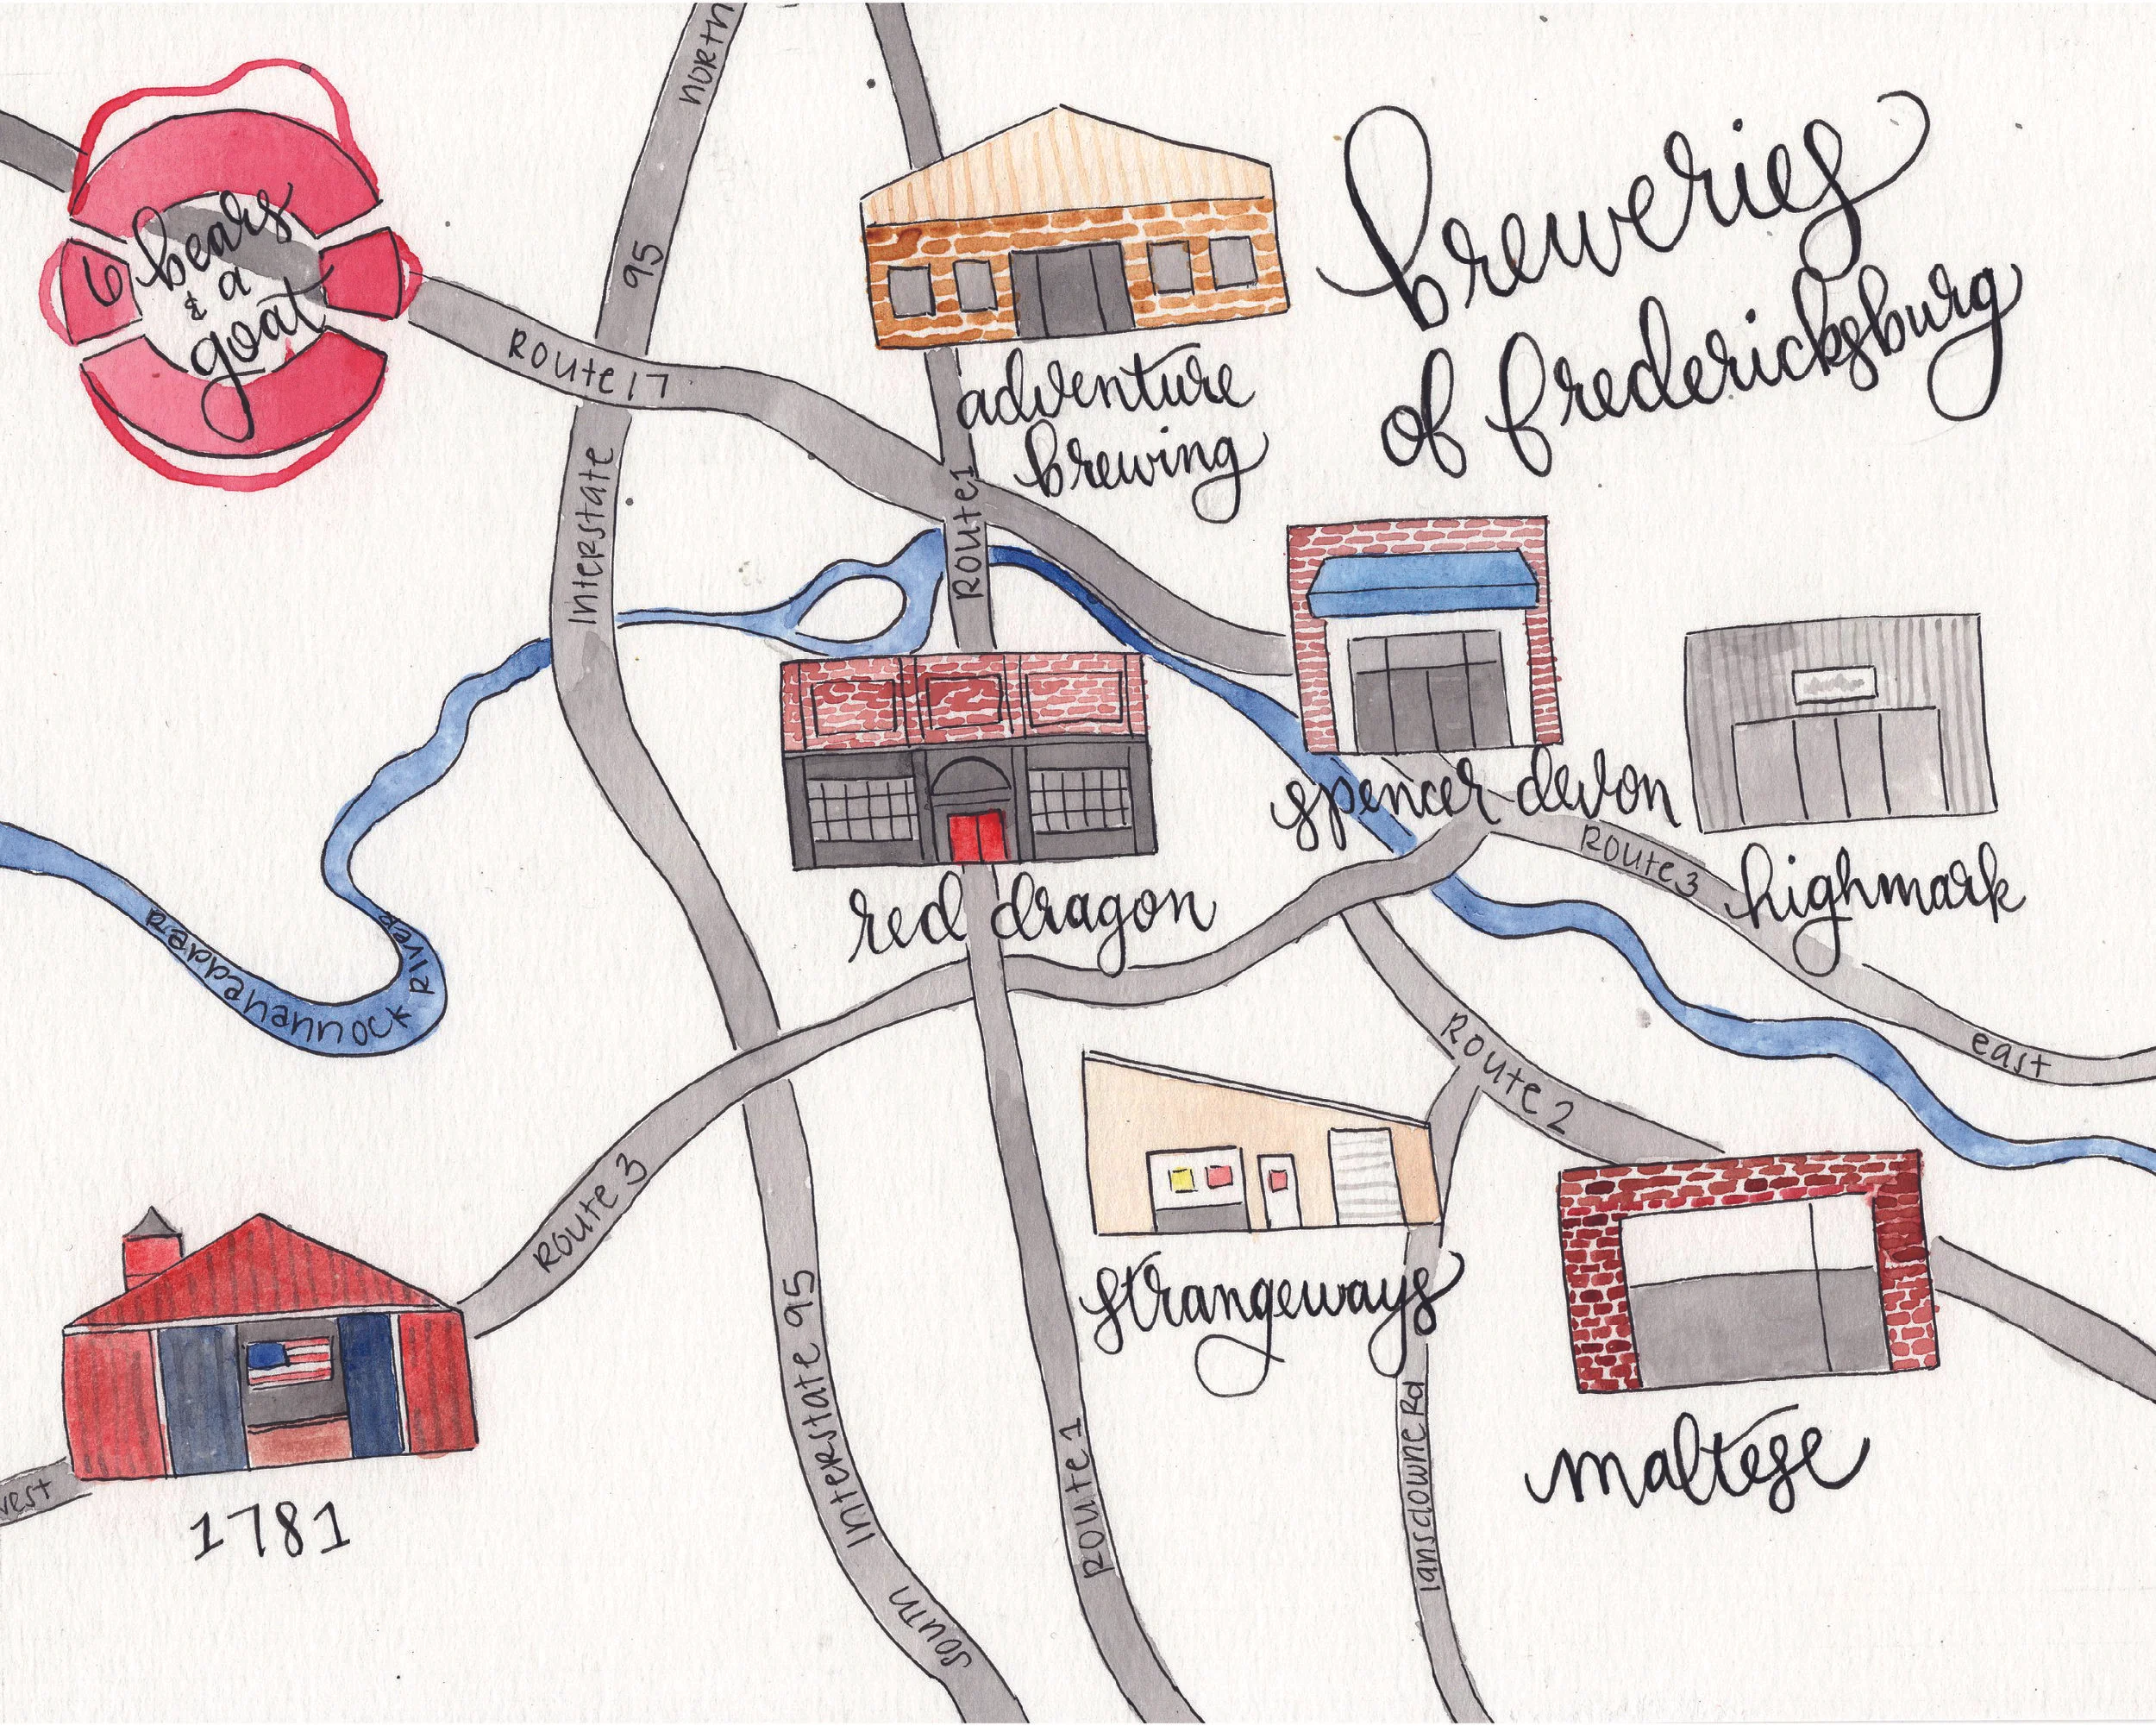 breweries
of fredericksburg
north
95
6 bears
& a
goat
Route 17
adventure
brewing
Interstate
Route 1
spencer devon
Route 3
highmark
red dragon
Rappahannock River
east
Route 2
Route 3
strangeways
Interstate 95
1781
west
maltese
Route 1
lansdowne Rd
south